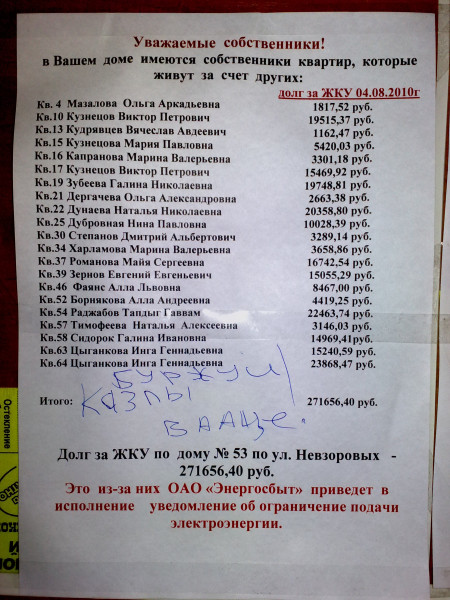 Уважаемые собственники!
в Вашем доме имеются собственники квартир, которые
живут за счет других:
долг за ЖКУ 04.08.2010г
Кв. 4 Мазалова Ольга Аркадьевна 1817,52 руб.
Кв.10 Кузнецов Виктор Петрович 19515,37 руб.
Кв.13 Кудрявцев Вячеслав Авдеевич 1162,47 руб.
Кв.15 Кузнецова Мария Павловна 5420,03 руб.
Кв.16 Капранова Марина Валерьевна 3301,18 руб.
Кв.17 Кузнецов Виктор Петрович 15469,92 руб.
Кв.19 Зубеева Галина Николаевна 19748,81 руб.
Кв.21 Дергачева Ольга Александровна 2663,38 руб.
Кв.22 Дунаева Наталья Николаевна 20358,80 руб.
Кв.25 Дубровная Нина Павловна 10028,39 руб.
Кв.30 Степанов Дмитрий Альбертович 3289,14 руб.
Кв.34 Харламова Марина Валерьевна 3658,86 руб.
Кв.37 Романова Майя Сергеевна 16742,54 руб.
Кв.39 Зернов Евгений Евгеньевич 15055,29 руб.
Кв.46 Фаянс Алла Львовна 8467,00 руб.
Кв.52 Борнякова Алла Андреевна 4419,25 руб.
Кв.54 Раджабов Тапдыг Гаввам 22463,74 руб.
Кв.57 Тимофеева Наталья Алексеевна 3146,03 руб.
Кв.58 Сидорок Галина Ивановна 14969,41руб.
Кв.63 Цыганкова Инга Геннадьевна 15240,59 руб.
Кв.64 Цыганкова Инга Геннадьевна 23868,47 руб.
БУРЖУИ
КАЗЛЫ
ВААЩЕ.
Итого: 271656,40 руб.
Долг за ЖКУ по дому № 53 по ул. Невзоровых -
271656,40 руб.
Это из-за них ОАО «Энергосбыт» приведет в
исполнение уведомление об ограничение подачи
электроэнергии.
Остекление